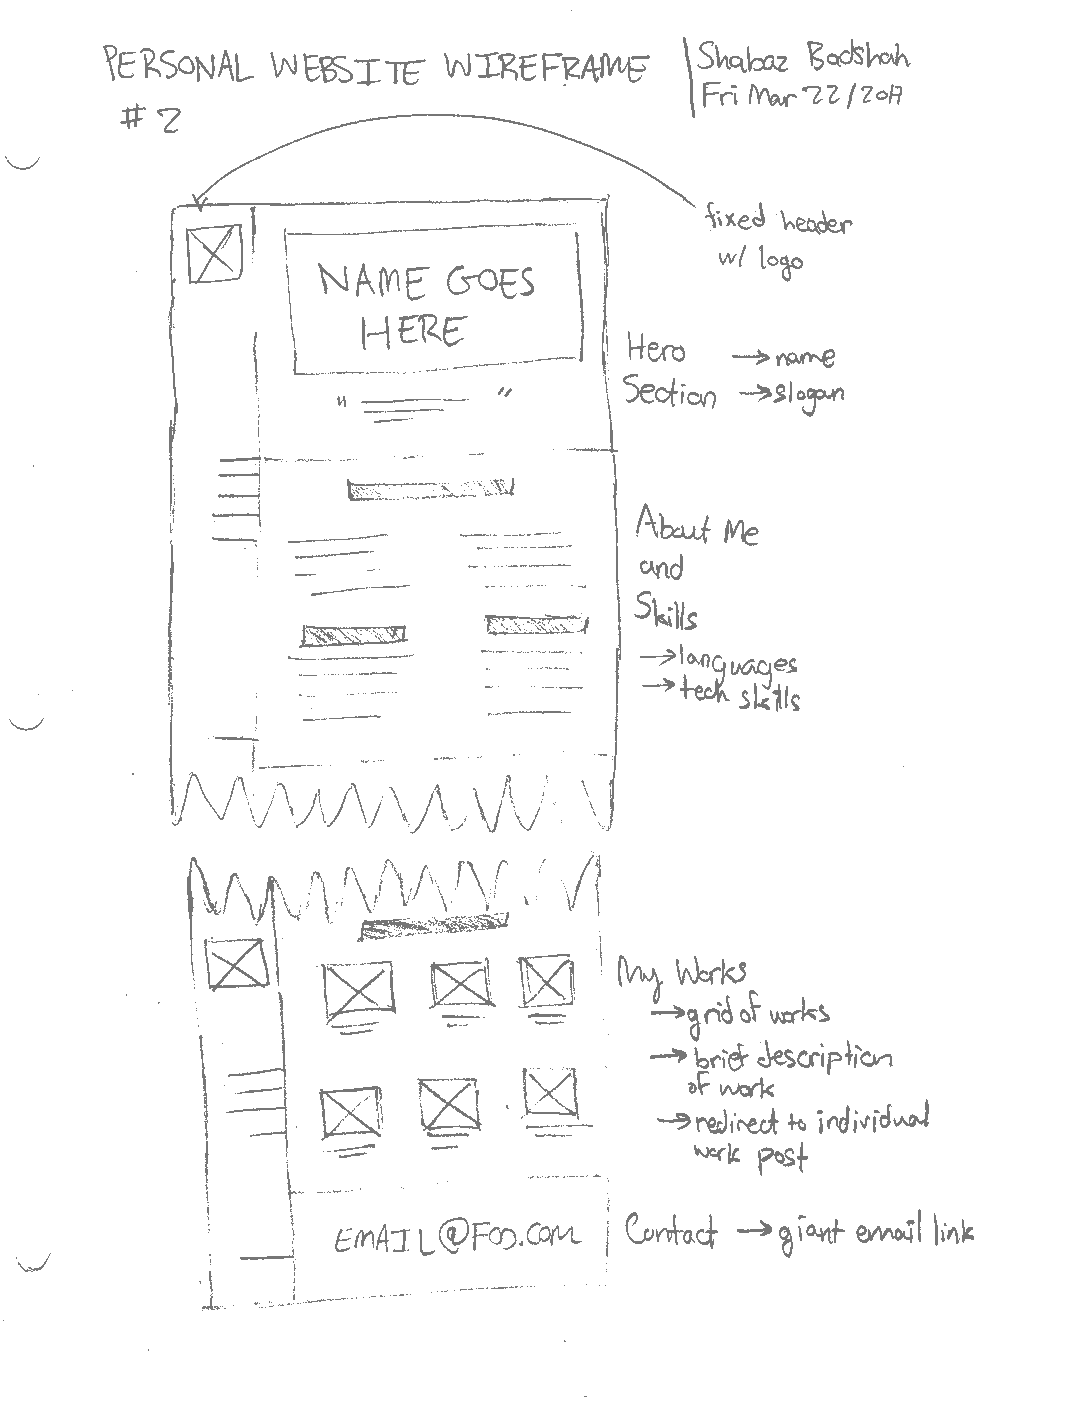 PERSONAL WEBSITE WIREFRAME
# 2
Shabaz Badshah
Fri Mar 22/2017
fixed header
w/ logo
NAME GOES
HERE
" "
Hero → name
Section → slogan
About Me
and
Skills
→ languages
→ tech skills
My Works
→ grid of works
→ brief description
of work
→ redirect to individual
work post
EMAIL@FOO.COM
Contact → giant email link